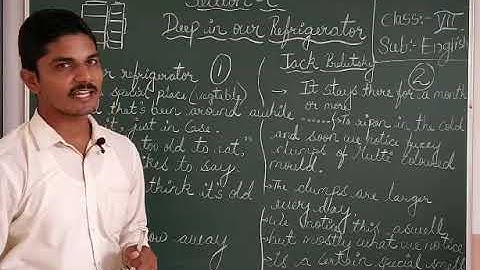 Section-C
Deep in our Refrigerator
Class:- VII
Sub:- English
1
r refrigerator
special place (vegtable)
that's been around awhile
it's just in Case.
too old to eat,"
ikes to say,
think it's old
ow away
Jack Prelutsky
2
→ It stays there for a month
or more
To ripen in the cold
and soon we notice fuzzy
clumps of Multi coloured
mould.
→ The clumps are larger
every day
we notice this as well
but mostly what we notice
is a certain special smell